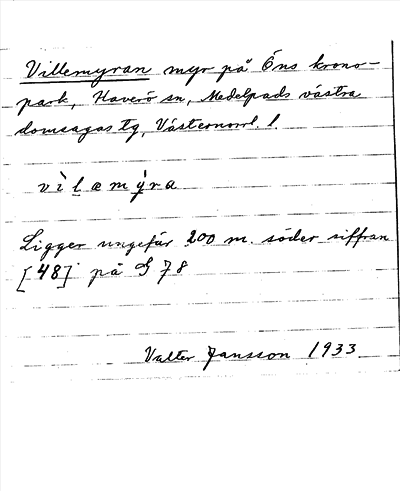 Villemyran myr på Öns krono-
park, Haverö sn, Medelpads västra
domsagas tg, Västernorrl. l.
vìlæmýra
Ligger ungefär 200 m. söder siffran
[48] på G 78
Valter Jansson 1933